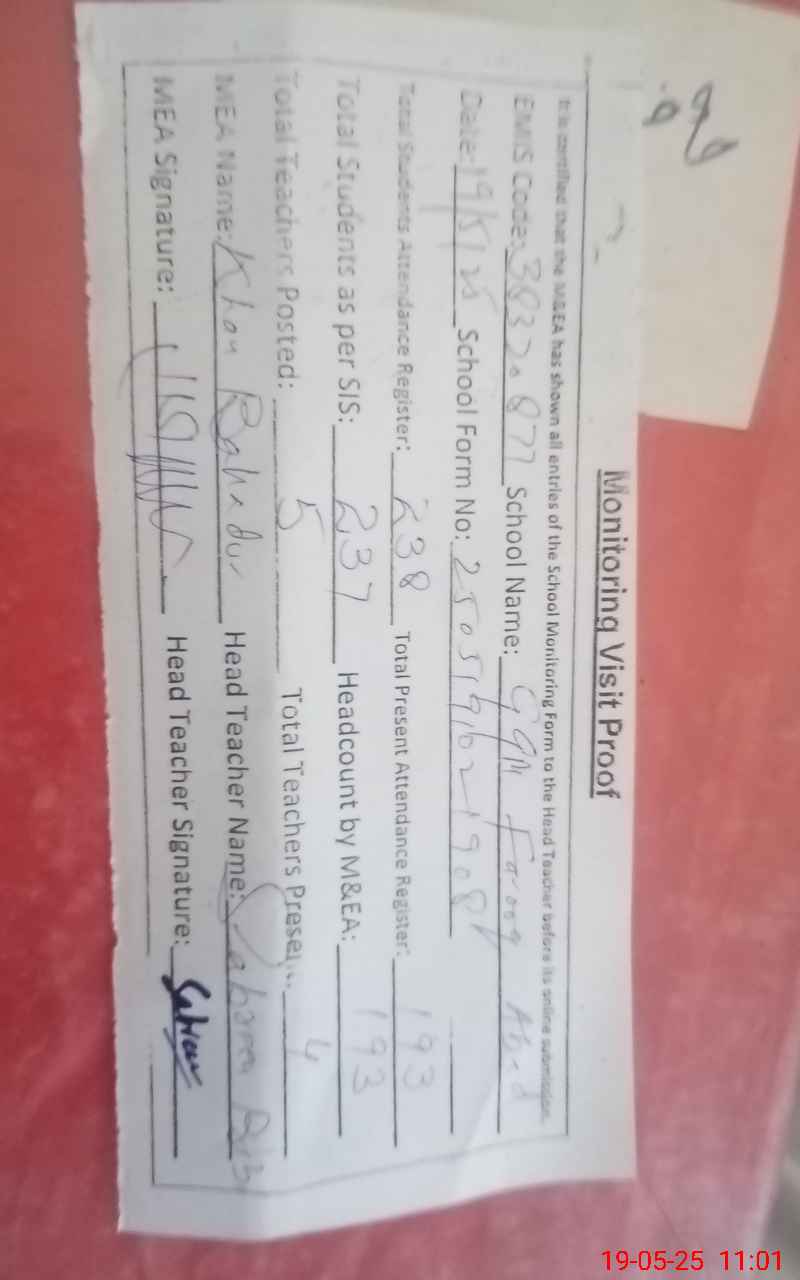 Monitoring Visit Proof
It is certified that the M&EA has shown all entries of the School Monitoring Form to the Head Teacher before its online submission.
EMIS Code: 38320877 School Name: GGM Farooq Abad
Date: 19/5/25 School Form No: 2505191021908
Total Students Attendance Register: 238 Total Present Attendance Register: 193
Total Students as per SIS: 237 Headcount by M&EA: 193
Total Teachers Posted: 5 Total Teachers Present: 4
MEA Name: Khan Bahadur Head Teacher Name: Bibi
MEA Signature: Head Teacher Signature:
19-05-25 11:01